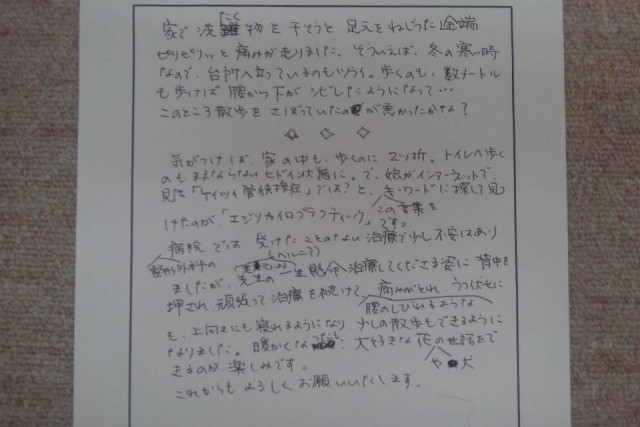 家で洗濯物を干そうと足元をねじった途端
ピリピリッと痛みが走りました。そういえば、冬の寒い時
なので、台所へ立っているのもツライ。歩くのも、数メートル
も歩けば腰から下がシビレたようになって…
このところ散歩をさぼっていたのが悪かったかな?
◇ ◇ ◇
気がつけば、家の中も、歩くのに 2ツ折。トイレへ歩く
のもままならないヒドイ状態に。で、娘がインターネットで、
見た「ケイツイ管狭搾症」では?と、キーワードに探して見つ
けたのが、「エジリカイロプラクティック」この言葉をです。
病院では 受けたことのない治療で少し不安はあり
整形外科の
(ヘルニア?)
ましたが、先生の一生懸命治療してくださる姿に背中を
押され、頑張って治療を続けて 痛みがとれ、うつ伏せに
腰のしびれるような
も、上向きにも寝れるようになり、少しの散歩もできるように
なりました。暖かくなったら、大好きな花の世話をで
や犬
きるのが、楽しみです。
これからもよろしくお願いいたします。